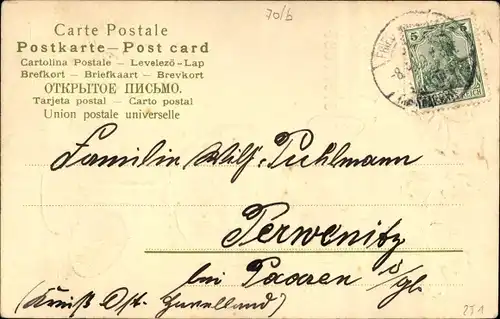 70/b
Carte Postale
Postkarte – Post card
Cartolina Postale – Levelező-Lap
Brefkort – Briefkaart – Brevkort
ОТКРЫТОЕ ПИСЬМО.
Tarjeta postal – Carto postal
Union postale universelle
5
Familie Wilh. Puhlmann
Perwenitz
bei Paaren i/gl.
(Kreiß Ost-Havelland)